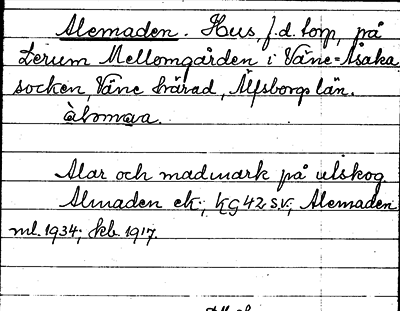 Alemaden. Hus, f.d. torp, på
Lerum Mellomgården i Väne-Åsaka
socken, Väne härad, Älfsborgs län.
Alar och madmark på utskog
Almaden ek.; KG 42 s.v.; Alemaden
ml. 1934; kb. 1917.